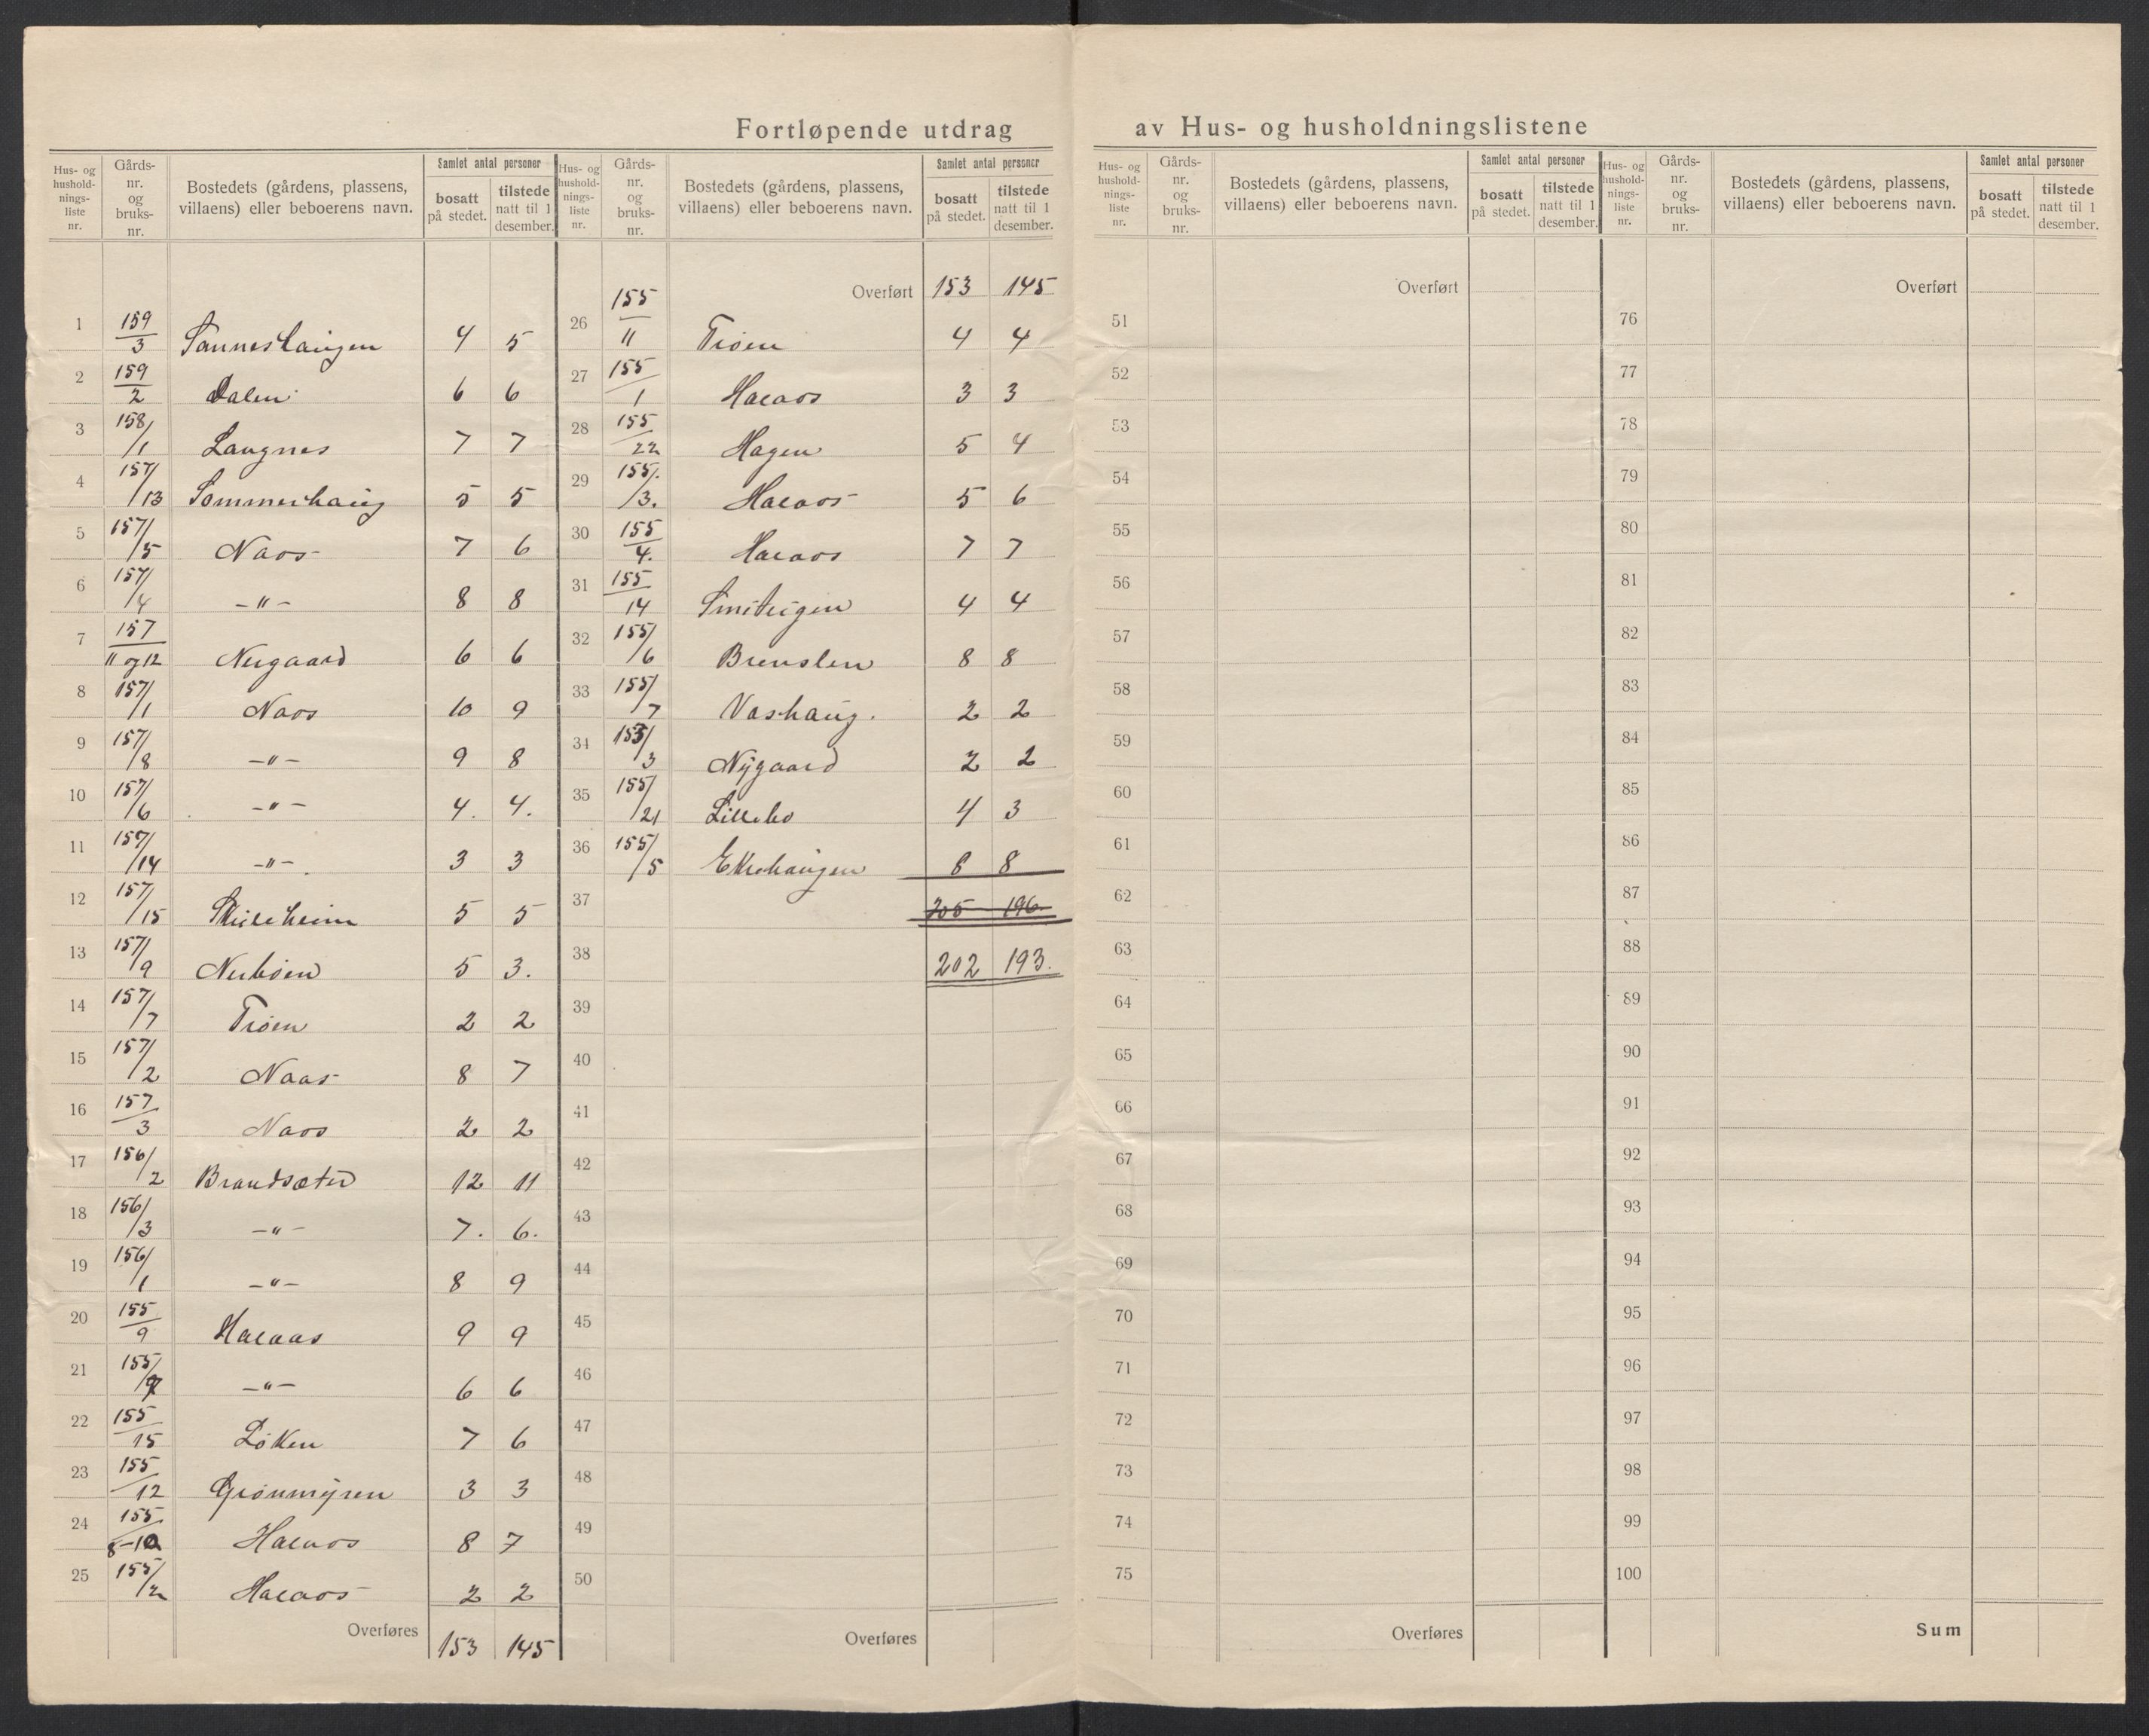 Fortløpende utdrag av Hus- og husholdningslistene
Hus- og husholdnings-liste nr. | Gårds-nr. og bruks-nr. | Bostedets (gårdens, plassens, villaens) eller beboerens navn. | Samlet antal personer | bosatt på stedet. | tilstede natt til 1 desember.
1 159/3 Sanneshaugen 4 5
2 159/2 Dalen 6 6
3 158/1 Langnes 7 7
4 157/13 Sommerhaug 5 5
5 157/5 Naos 7 6
6 157/4 -"- 8 8
7 157/11 og 12 Nergaard 6 6
8 157/1 Naos 10 9
9 157/8 -"- 9 8
10 157/6 -"- 4. 4.
11 157/14 -"- 3 3
12 157/15 Skileheim 5 5
13 157/9 Nerbøen 5 3.
14 157/7 Trøen 2 2
15 157/2 Naas 8 7
16 157/3 Naos 2 2
17 156/2 Brandsæter 12 11
18 156/3 -"- 7. 6.
19 156/1 -"- 8 9
20 155/9 Haraas 9 9
21 155/ -"- 6 6
22 155/15 Løken 7 6
23 155/12 Grønmyren 3 3
24 155/8-10 Haraos 8 7
25 155/2 Haraos 2 2
Overføres 153 145
Hus- og husholdnings-liste nr. | Gårds-nr. og bruks-nr. | Bostedets (gårdens, plassens, villaens) eller beboerens navn. | Samlet antal personer | bosatt på stedet. | tilstede natt til 1 desember.
Overført 153 145
26 155/11 Trøen 4 4
27 155/1 Haraos 3 3
28 155/22 Hagen 5 4
29 155/3. Haraos 5 6
30 155/4. Haraos 7 7
31 155/14 4 4
32 155/6 Brenslen 8 8
33 155/7 Vashaug. 2 2
34 153/3 Nygaard 2 2
35 155/21 Lillebo 4 3
36 155/5 Ekrehaugen 8 8
37 205 196
38 202 193.
39
40
41
42
43
44
45
46
47
48
49
50
Overføres
Hus- og husholdnings-liste nr. | Gårds-nr. og bruks-nr. | Bostedets (gårdens, plassens, villaens) eller beboerens navn. | Samlet antal personer | bosatt på stedet. | tilstede natt til 1 desember.
Overført
51
52
53
54
55
56
57
58
59
60
61
62
63
64
65
66
67
68
69
70
71
72
73
74
75
Overføres
Hus- og husholdnings-liste nr. | Gårds-nr. og bruks-nr. | Bostedets (gårdens, plassens, villaens) eller beboerens navn. | Samlet antal personer | bosatt på stedet. | tilstede natt til 1 desember.
Overført
76
77
78
79
80
81
82
83
84
85
86
87
88
89
90
91
92
93
94
95
96
97
98
99
100
Sum